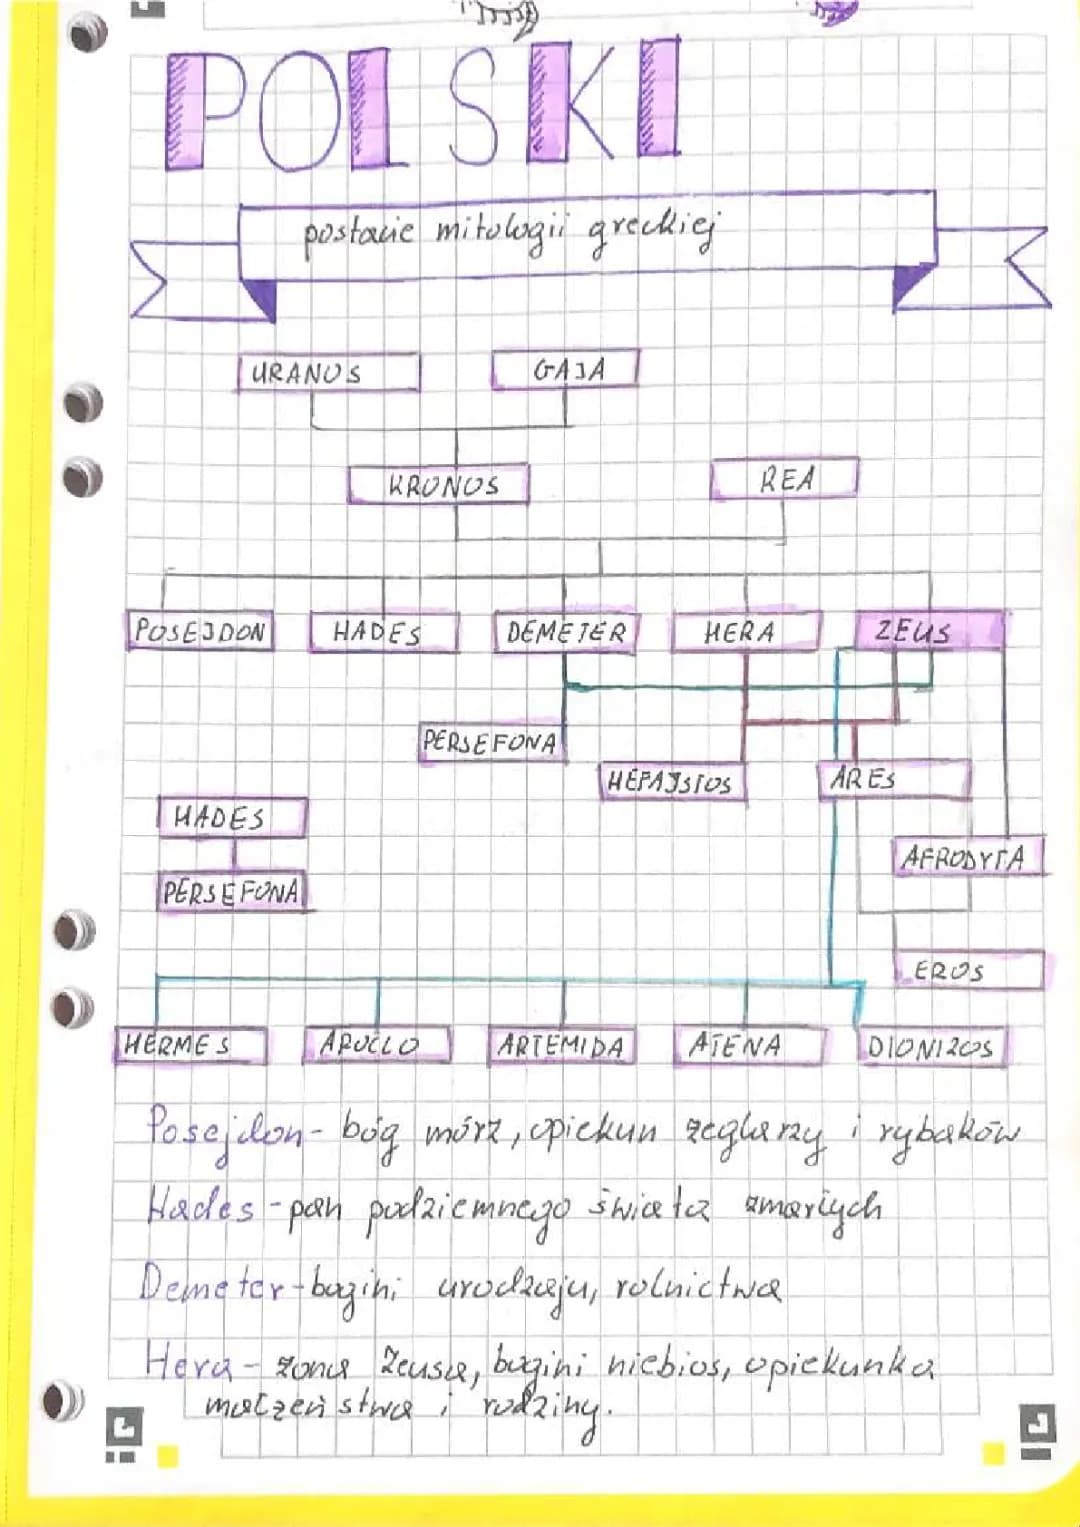 POLSKI
postacie mitologii greckiej
URANUS GAJA
KRONOS REA
POSEJDON HADES DEMETER HERA ZEUS
PERSEFONA
HEFAJSTOS ARES
HADES
AFRODYTA
PERSEFONA
EROS
HERMES APOLLO ARTEMIDA ATENA DIONIZOS
Posejdon - bóg mórz, opiekun żeglarzy i rybaków
Hades - pan podziemnego świata zmarłych
Demeter - bogini urodzaju, rolnictwa
Hera - żona Zeusa, bogini niebios, opiekunka
małżeństwa i rodziny.